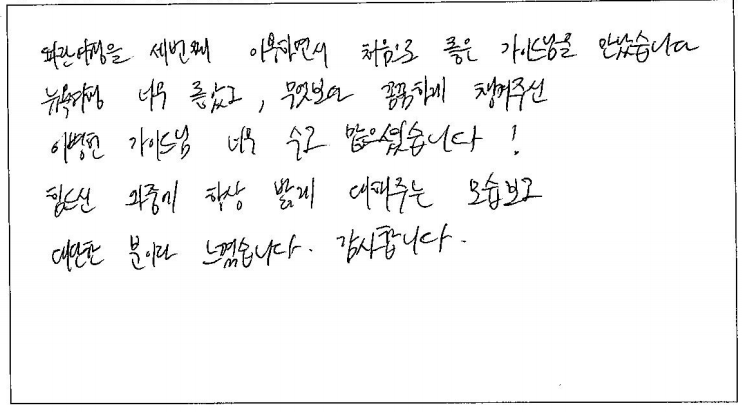 파란여행을 세번째 이용하면서 처음으로 좋은 가이드님을 만났습니다
뉴욕여행 너무 좋았고, 무엇보다 꼼꼼하게 챙겨주신
이병헌 가이드님 너무 수고 많으셨습니다!
힘드신 와중에 항상 밝게 대해주는 모습보고
대단한 분이라 느꼈습니다. 감사합니다.